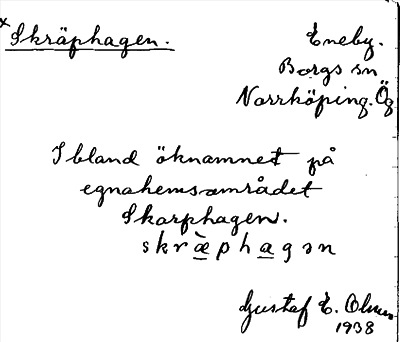 x Skräphagen.
Eneby.
Borgs sn
Norrköping. Ög
Ibland öknamnet på
egnahemsområdet
Skarphagen.
skræ̀phagən
Gustaf E.
1938